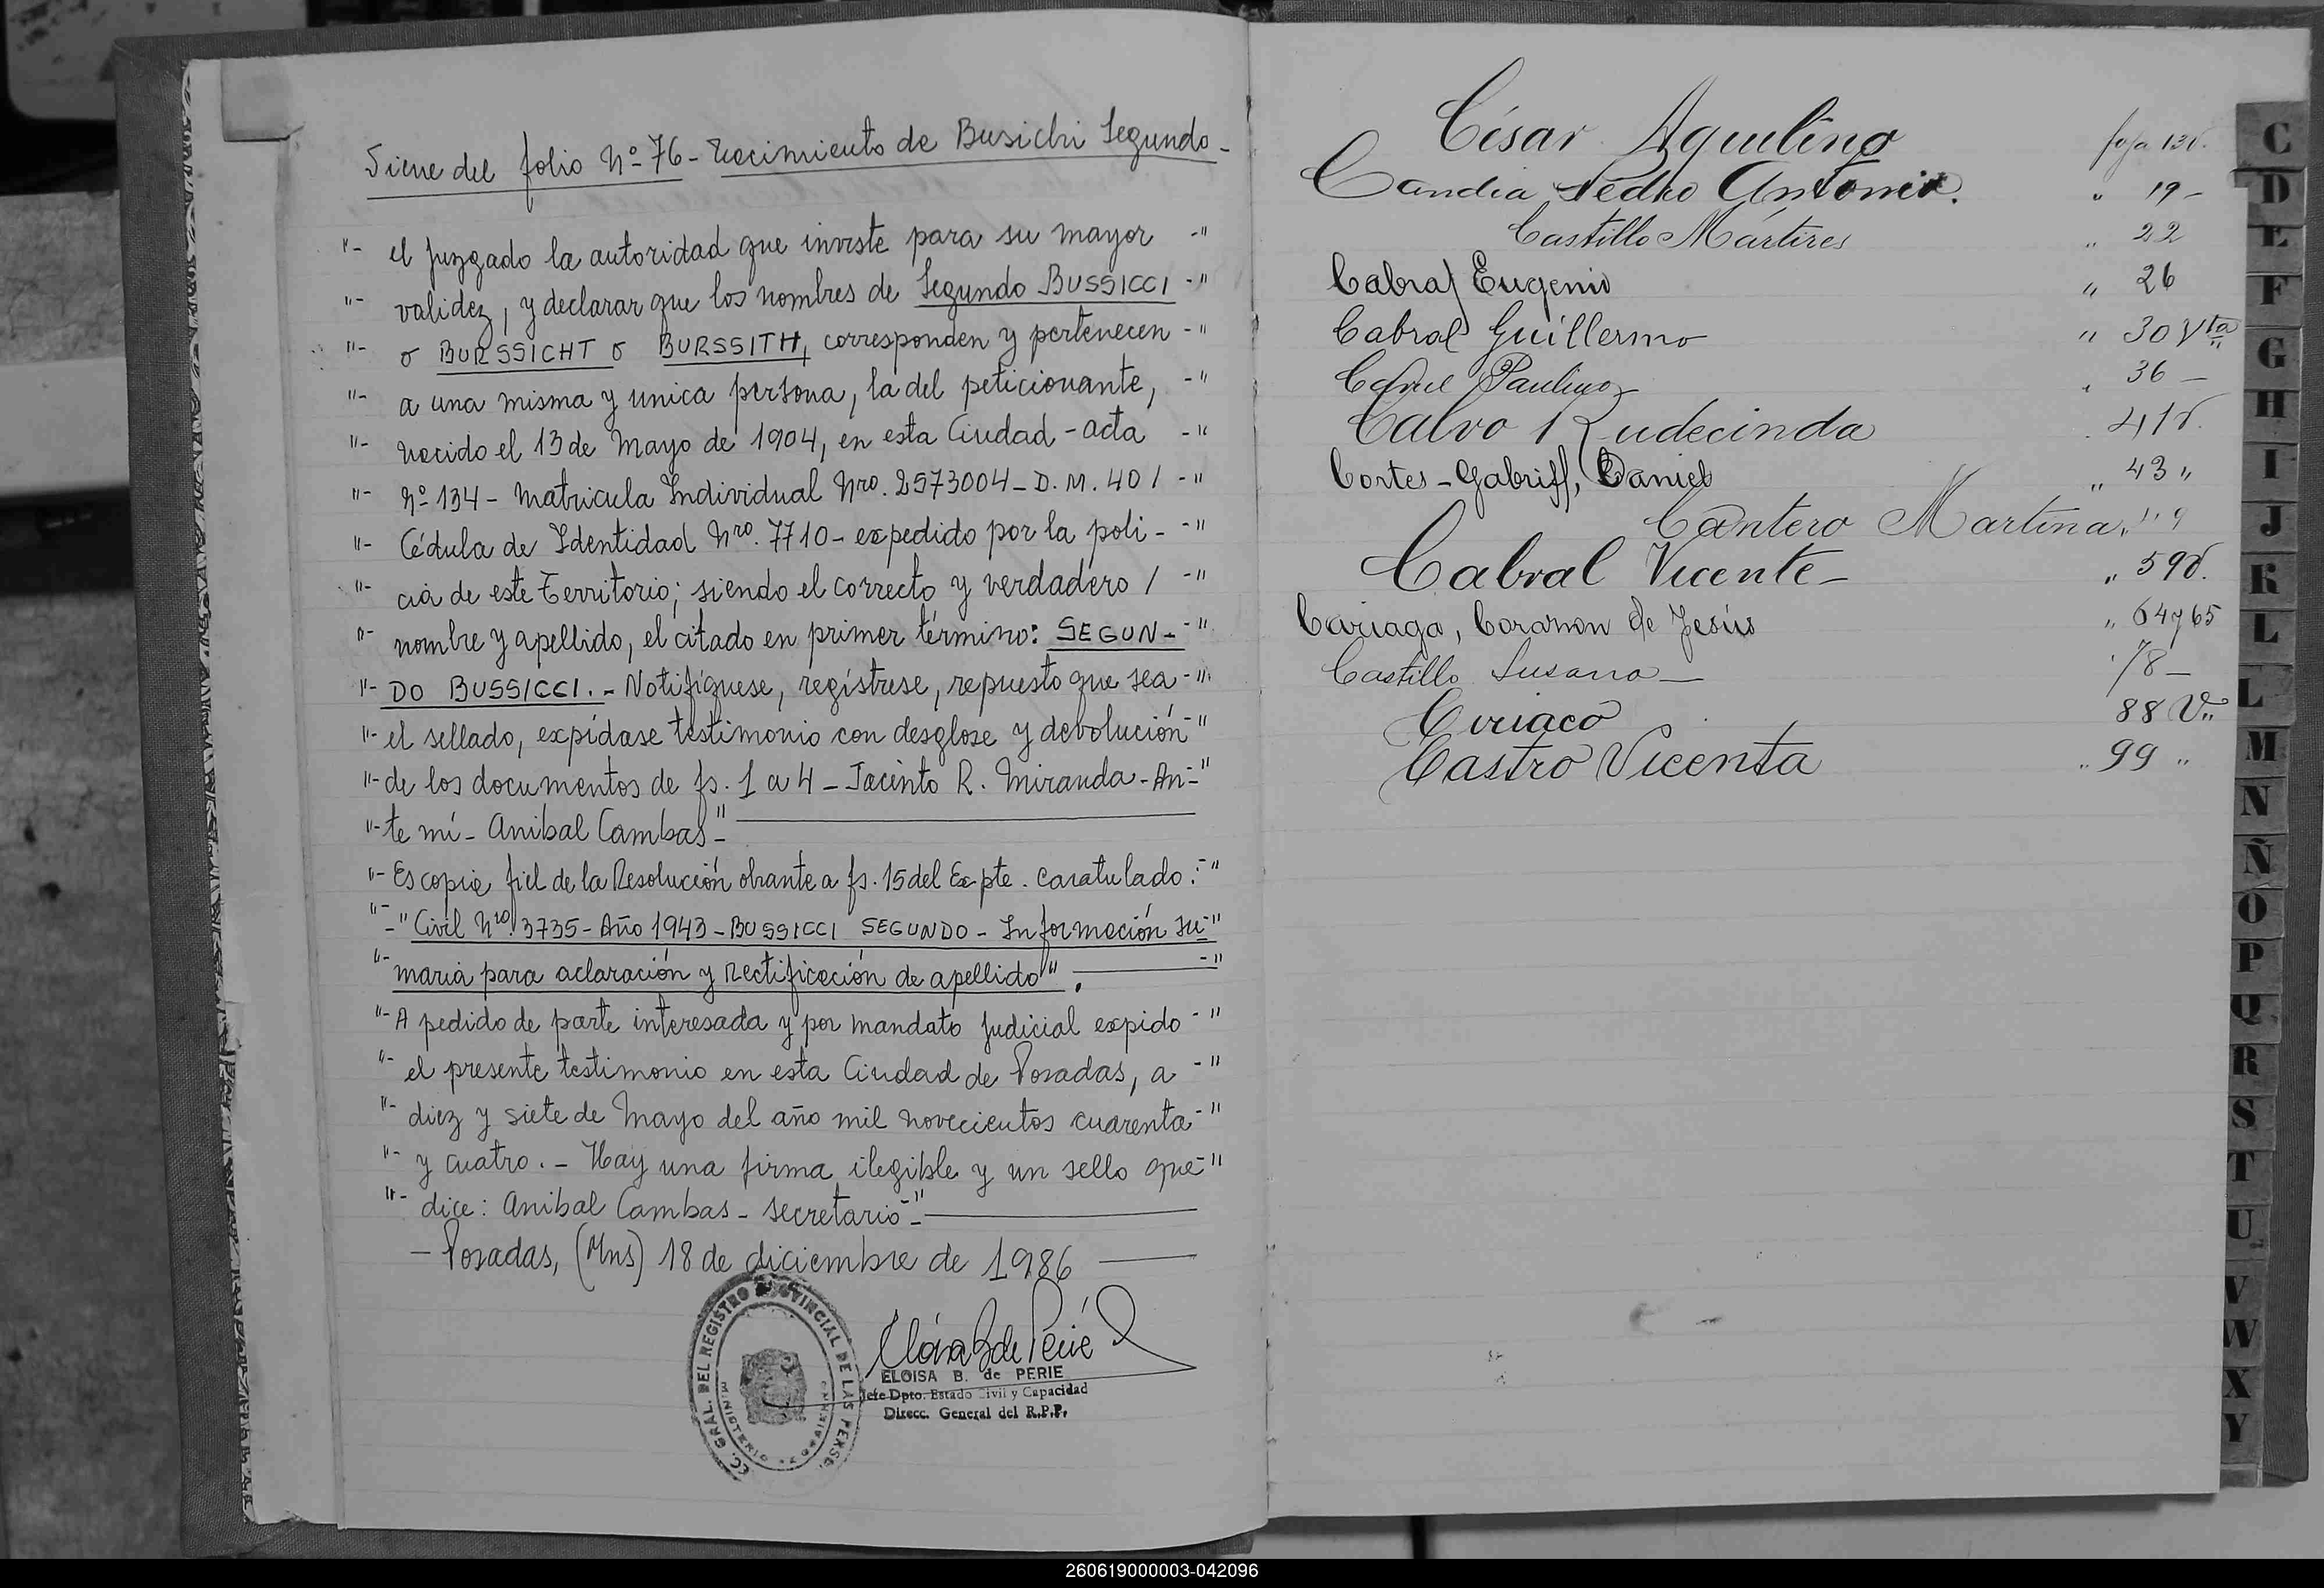 Viene del folio Nº 76 - Nacimiento de Busichi Segundo -
"- el juzgado la autoridad que inviste para su mayor -"
"- validez, y declarar que los nombres de Segundo BUSSICCI -"
"- o BURSSICHT o BURSSITH, corresponden y pertenecen -"
"- a una misma y unica persona, la del peticionante, -"
"- nacido el 13 de Mayo de 1904, en esta Ciudad - acta -"
"- Nº 134 - Matricula Individual Nro. 2573004 - D. M. 40 / -"
"- Cédula de Identidad Nro. 7710 - expedido por la poli - -"
"- cia de este Territorio; siendo el correcto y verdadero / -"
"- nombre y apellido, el citado en primer término: SEGUN - -"
"- DO BUSSICCI. - Notifíquese, regístrese, repuesto que sea -"
"- el sellado, expídase testimonio con desglose y devolución -"
"- de los documentos de fs. 1 a 4 - Jacinto R. Miranda - An- -"
"- te mí - Anibal Cambas -"
"- Es copia fiel de la Resolución obrante a fs. 15 del Expte. caratulado: -"
"- - "Civil Nro. 3735 - Año 1943 - BUSSICCI SEGUNDO - Información su- -"
"- maria para aclaración y rectificación de apellido". -"
"- A pedido de parte interesada y por mandato judicial expido -"
"- el presente testimonio en esta Ciudad de Posadas, a -"
"- diez y siete de Mayo del año mil novecientos cuarenta -"
"- y cuatro. - Hay una firma ilegible y un sello que -"
"- dice: Anibal Cambas - secretario -"
- Posadas, (Mns) 18 de diciembre de 1986
GRAL. DEL REGISTRO PROVINCIAL DE LAS PERSO
MINISTERIO
ELOISA B. de PERIE
Jefe Dpto. Estado Civil y Capacidad
Direcc. General del R.P.P.
César Aquilino foja 13v.
Candia Pedro Antonio. " 19 -
Castillo Mártires " 22
Cabral Eugenio " 26
Cabral Guillermo " 30 Vta
Paulino 36 -
Calvo Rudecinda 41v.
Cortes - Gabriff, Daniel " 43 "
Cantero Martina
Cabral Vicente - " 59v.
Cariaga, Corazon de Jesús " 64 y 65
Castillo Susana - 78 -
Ciriaco 88 V"
Castro Vicenta " 99 "
C
D
E
F
G
H
I
J
K
L
L
M
N
Ñ
O
P
Q
R
S
T
U
V
W
X
Y
260619000003-042096